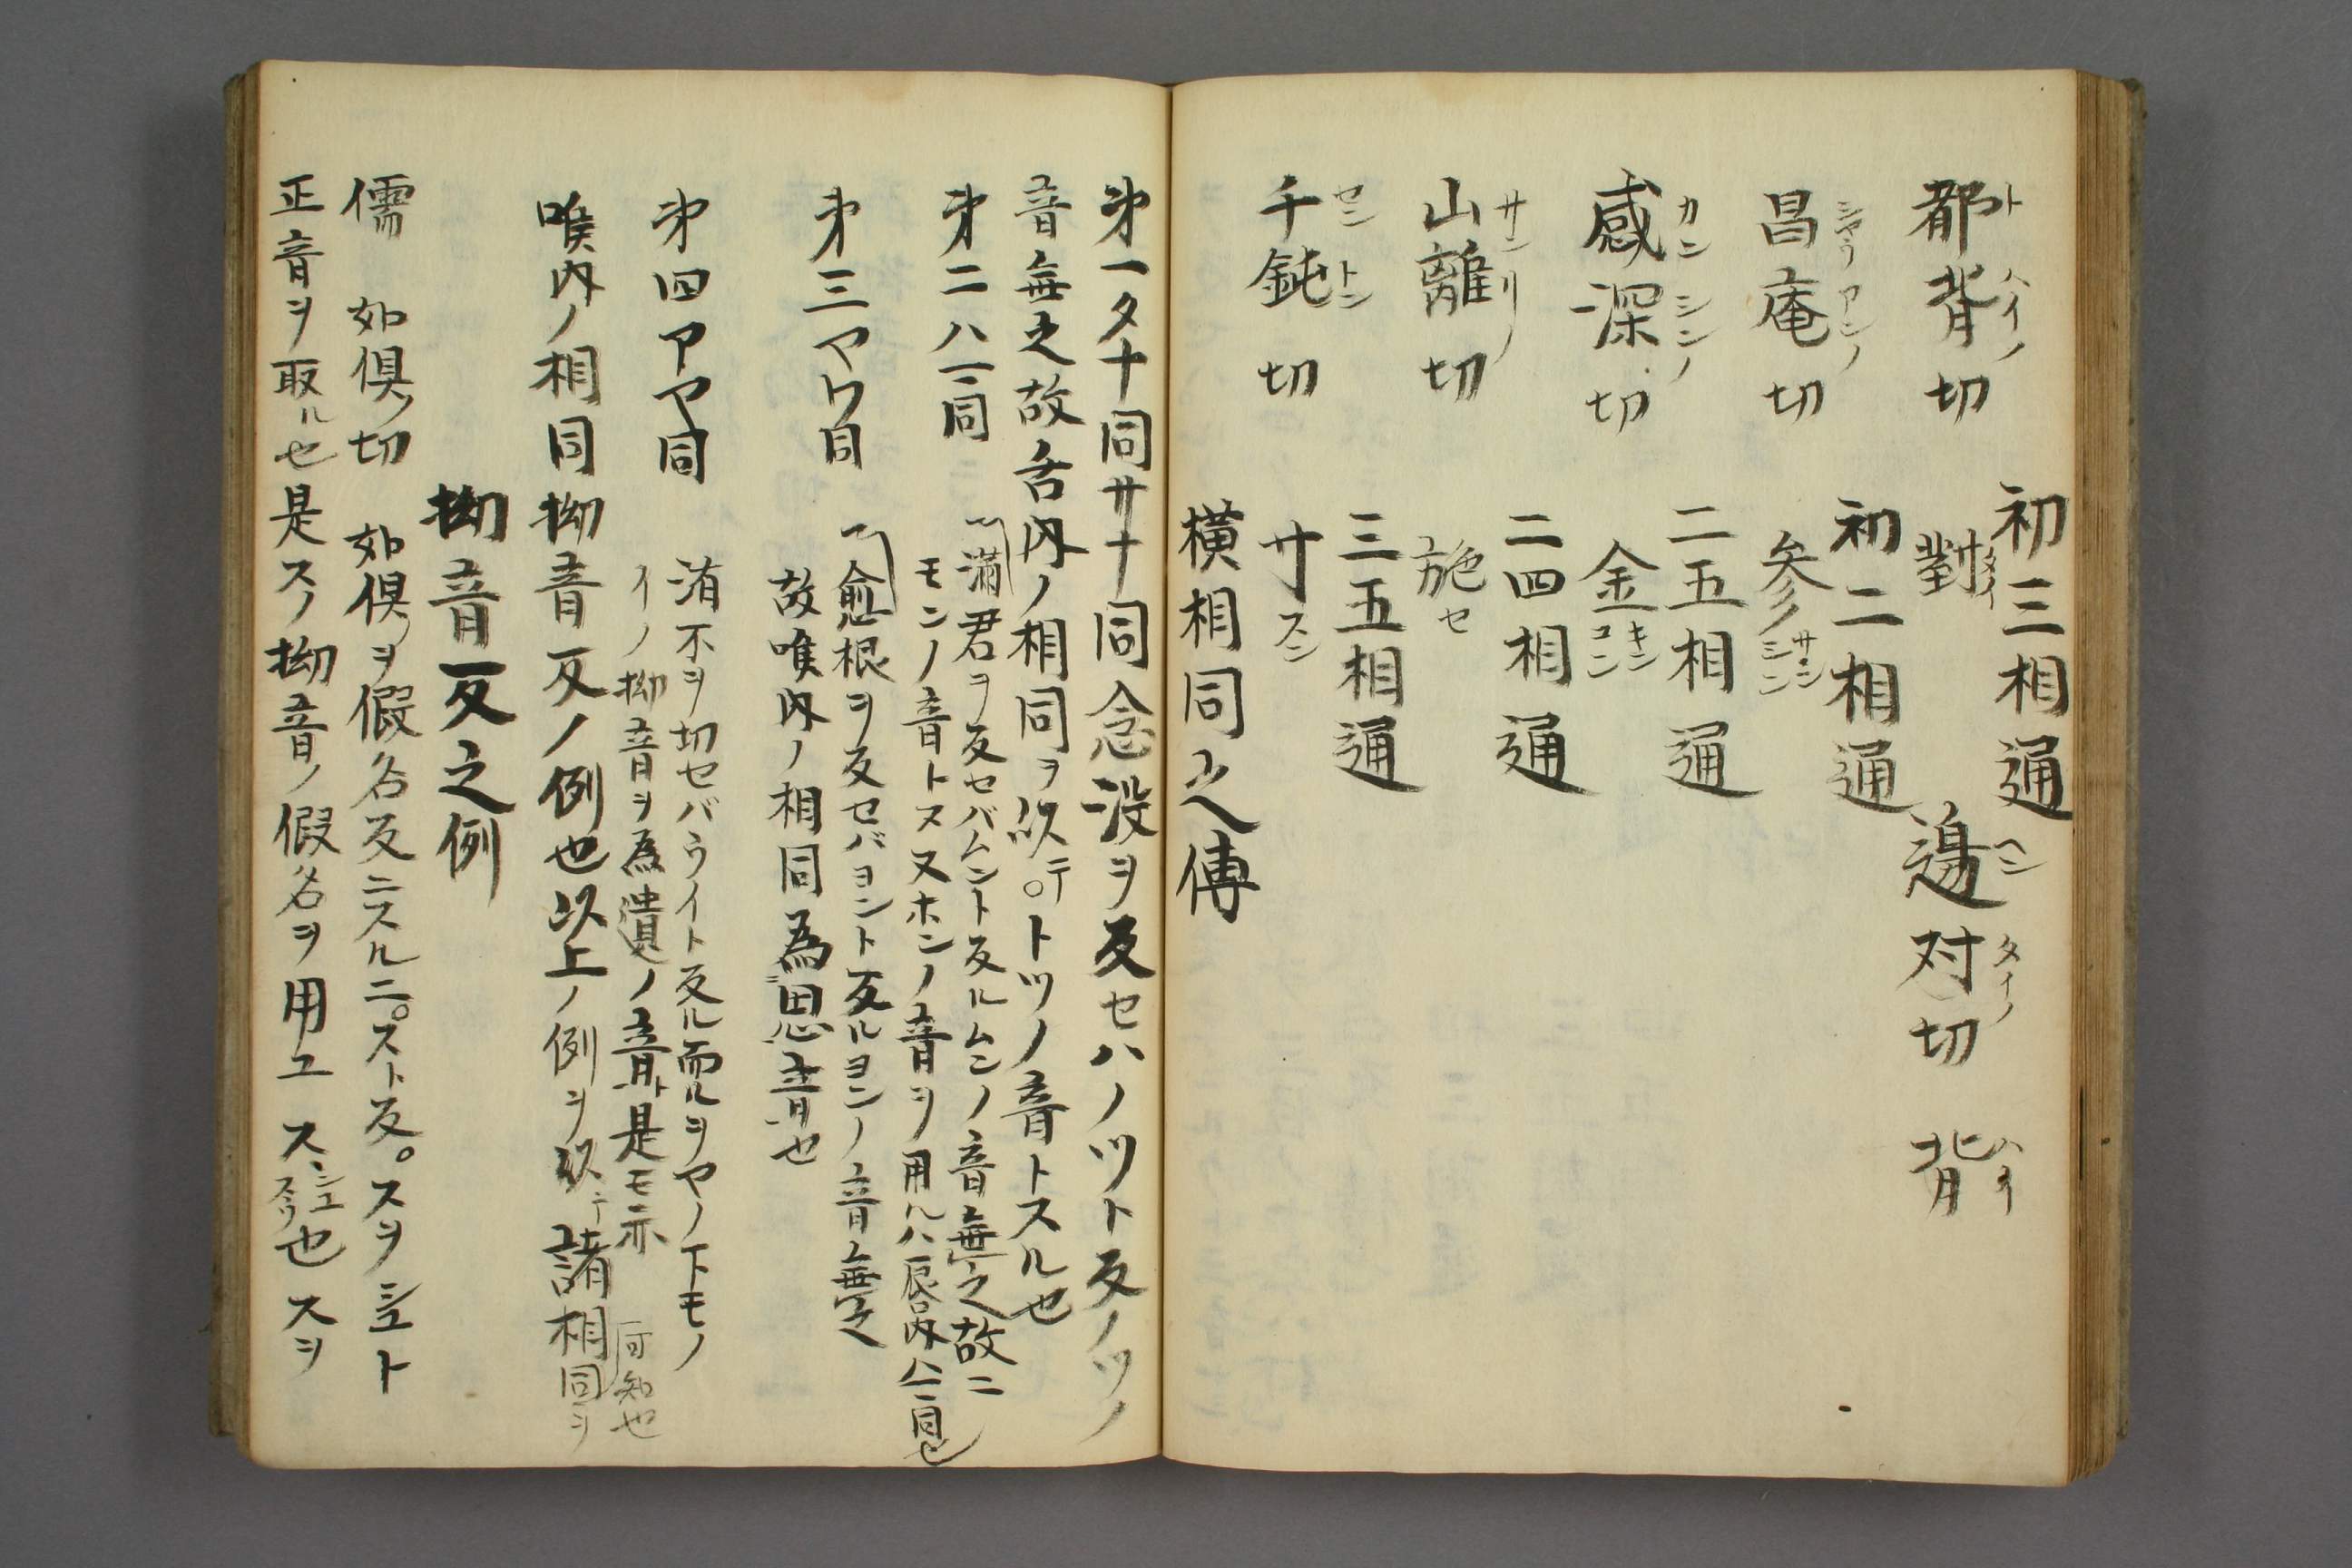 初三相通
都背ノ切 對 邉対ノ切 背
初二相通
昌庵ノ切 参
二五相通
感深ノ切 金
二四相通
山離ノ切 施
三五相通
千鈍切 寸
横相同之傳
第一タナ同サナ同念没ヲ反セハノツト反ノツノ
音無之故舌内ノ相同ヲ以テ。トツノ音トスル也
第二ハマ同 満君ヲ反セバムント反ルムンノ音無之故ニ
モンノ音トス又ホンノ音ヲ用ルハ唇内ハマ同也
第三マワ同 愈根ヲ反セバヨント反ルヨンノ音無之
故喉内ノ相同為恩音也
第四アヤ同 洧不ヲ切セバウイト反ル而ルヲヤノ下モノ
イノ拗音ヲ為遺ノ音ト是モ亦可知也
喉内ノ相同拗音反ノ例也以上ノ例ヲ以テ諸相同ヲ
拗音反之例
儒 如倶ノ切 如倶ヲ假名反ニスルニ。スト反。スヲシユト
正音ヲ取ル也是スノ拗音ノ假名ヲ用ユ スシユ也スヲ